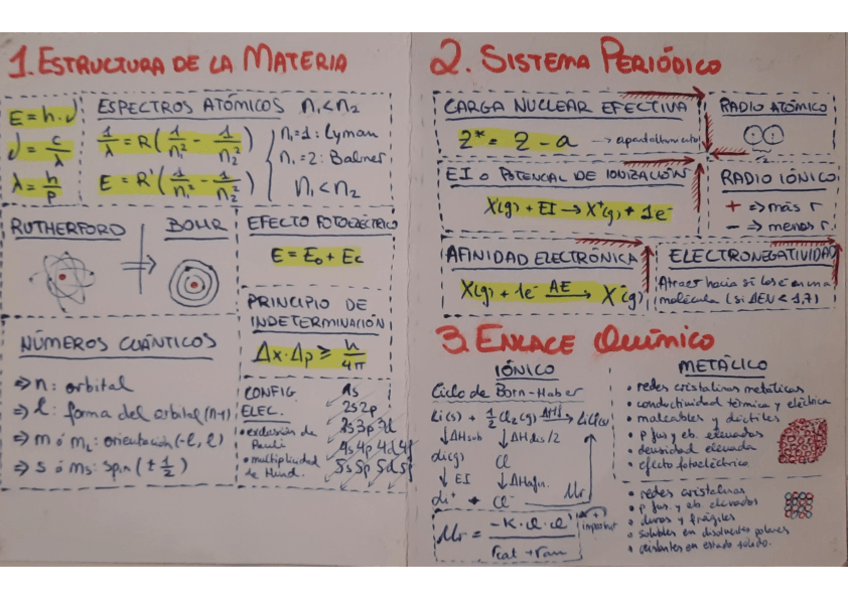 1. ESTRUCTURA DE LA MATERIA
E = h·ν
ν = c/λ
λ = h/p
ESPECTROS ATÓMICOS n₁ < n₂
1/λ = R(1/n₁² - 1/n₂²)
E = R'(1/n₁² - 1/n₂²)
n₁=1: Lyman
n₁=2: Balmer
n₁ < n₂
RUTHERFORD
BOHR
EFECTO FOTOELÉCTRICO
E = E₀ + Ec
PRINCIPIO DE
INDETERMINACIÓN
Δx·Δp ≥ h/4π
NÚMEROS CUÁNTICOS
⇒ n: orbital
⇒ l: forma del orbital (n-1)
⇒ m ó mL: orientación (-l, l)
⇒ s ó ms: spin (± 1/2)
CONFIG.
ELEC.
• exclusión de
Pauli
• multiplicidad
de Hund.
1s
2s 2p
3s 3p 3d
4s 4p 4d 4f
5s 5p 5d 5f
2. SISTEMA PERIÓDICO
CARGA NUCLEAR EFECTIVA
Z* = Z - a → apantallamiento
RADIO ATÓMICO
EI o POTENCIAL DE IONIZACIÓN
X(g) + EI → X⁺(g) + 1e⁻
RADIO IÓNICO
+ ⇒ más r
- ⇒ menos r
AFINIDAD ELECTRÓNICA
X(g) + 1e⁻ AE→ X⁻(g)
ELECTRONEGATIVIDAD
Atraer hacia sí los é en una
molécula (si ΔEN < 1,7)
3. ENLACE QUÍMICO
IÓNICO
Ciclo de Born-Haber
Li(s) + 1/2 Cl₂(g) ΔHf→ LiCl(s)
↓ΔHsub ↓ΔHdis/2
Li(g) Cl
↓EI ↓ΔHafin.
Li⁺ + Cl⁻ Ur
Ur = -K·Q·Q' / rcat + ran
METÁLICO
• redes cristalinas metálicas
• conductividad térmica y eléctrica
• maleables y dúctiles
• p fus. y eb. elevados
• densidad elevada
• efecto fotoeléctrico
• redes cristalinas
• p fus. y eb. elevados
• duros y frágiles
• solubles en disolventes polares
• aislantes en estado sólido.